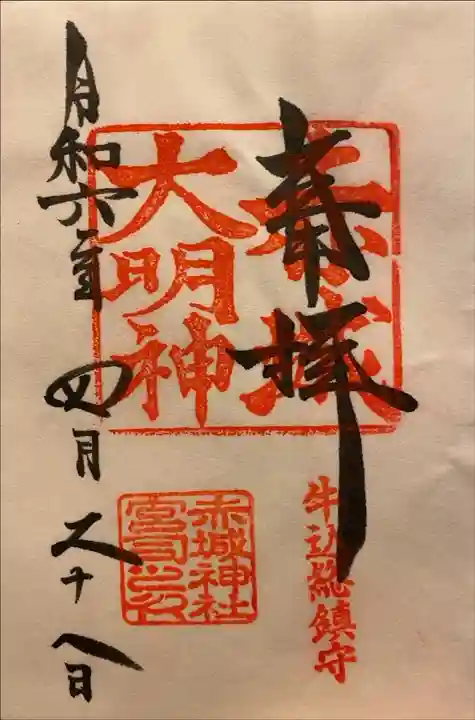 奉拝
牛込総鎮守
赤城
大明神
赤城神社
宮司之印
令和六年四月二十八日